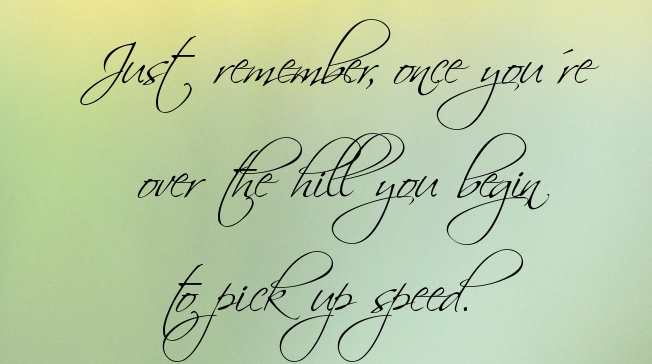 Just remember, once you're
over the hill you begin
to pick up speed.